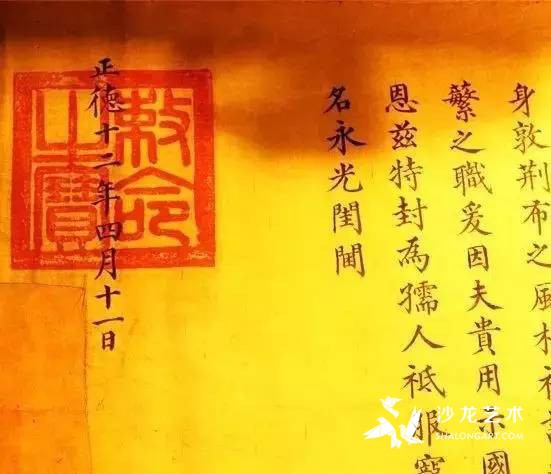 身敦荆布之風
蘩之職爰因夫貴用示國
恩兹特封為孺人祗服寵
名永光閨閫
正德十二年四月十一日
敕命之寶
沙龙艺术
SHALONGART.COM